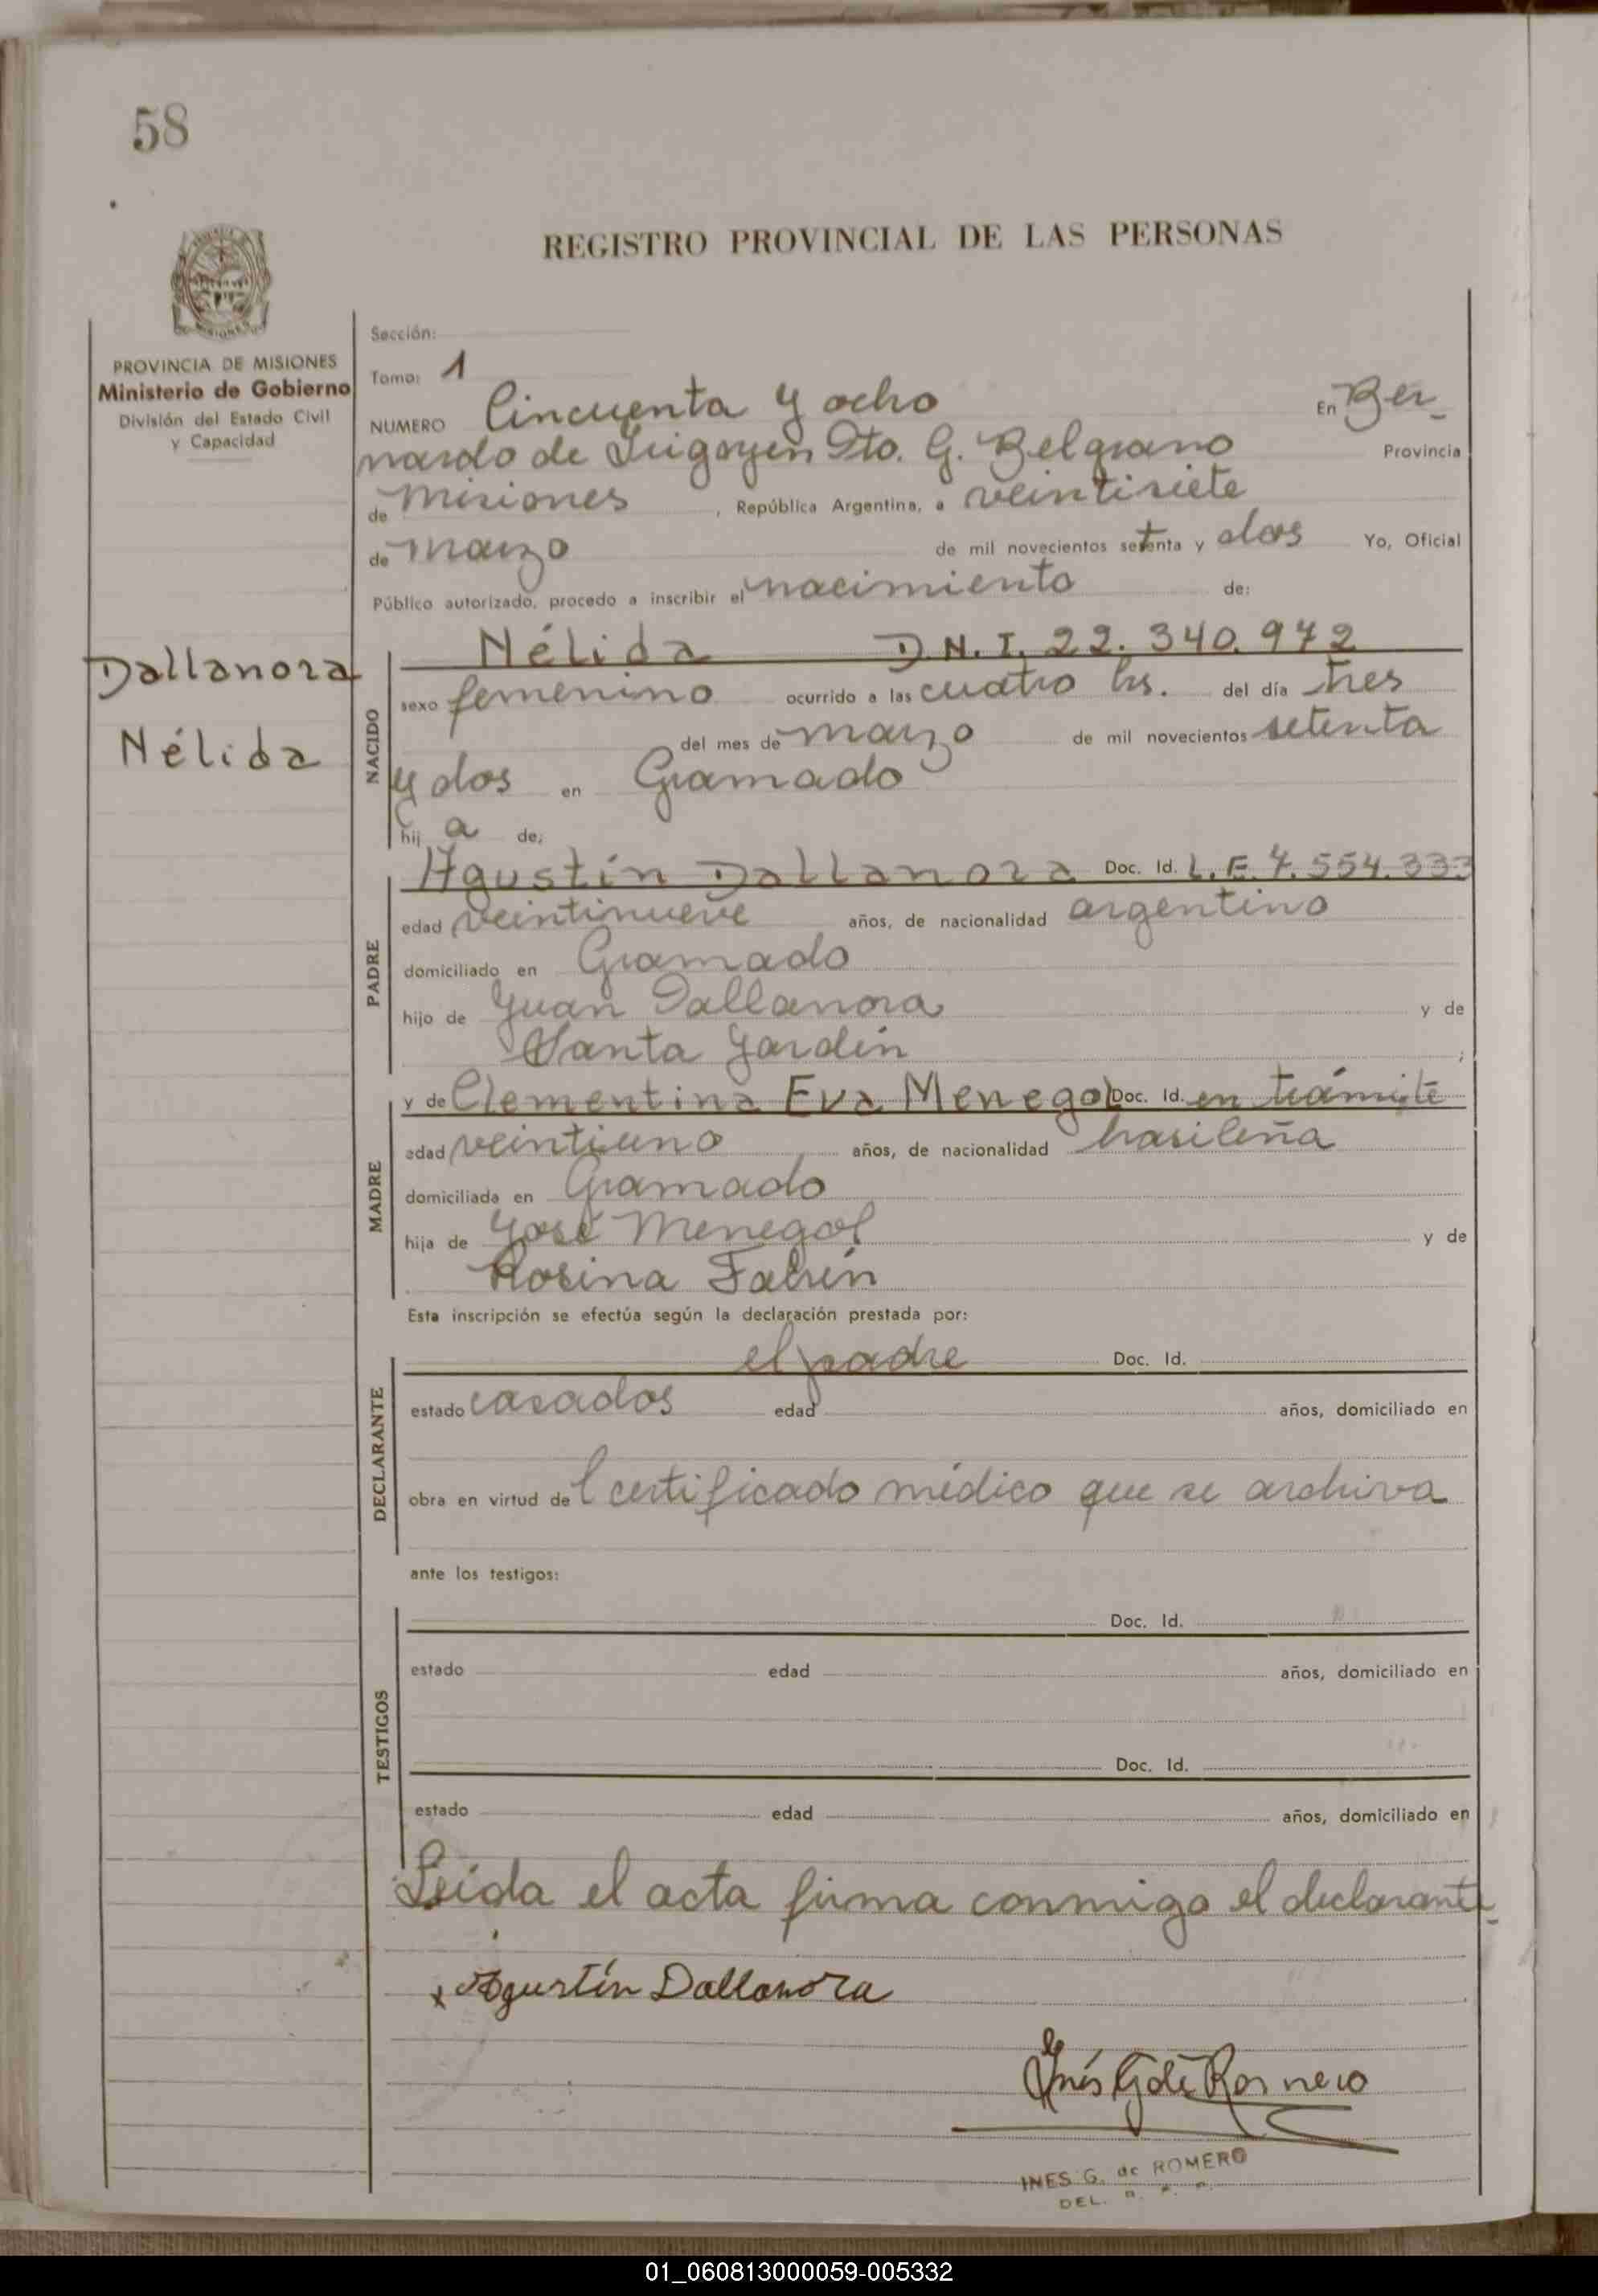 58
REGISTRO PROVINCIAL DE LAS PERSONAS
MISIONES
PROVINCIA DE MISIONES
Ministerio de Gobierno
División del Estado Civil
y Capacidad
Dallanora
Nélida
Sección:
Tomo: 1
NUMERO Cincuenta y ocho En Ber-
nardo de Irigoyen Dto. G. Belgrano Provincia
de Misiones, República Argentina, a veintisiete
de marzo de mil novecientos setenta y dos Yo, Oficial
Público autorizado, procedo a inscribir el nacimiento de:
NACIDO
Nélida D.N.I. 22.340.972
sexo femenino ocurrido a las cuatro hs. del día tres
del mes de marzo de mil novecientos setenta
y dos en Gramado
hij a de;
PADRE
Agustín Dallanora Doc. Id. L.E. 7.554.333
edad veintinueve años, de nacionalidad argentino
domiciliado en Gramado
hijo de Juan Dallanora y de
Santa Jardín ;
MADRE
y de Clementina Eva Menegol Doc. Id. en trámite
edad veintiuno años, de nacionalidad brasileña
domiciliada en Gramado
hija de José Menegol y de
Rosina Fabrín
Esta inscripción se efectúa según la declaración prestada por:
DECLARANTE
el padre Doc. Id.
estado casados edad años, domiciliado en
obra en virtud del certificado médico que se archiva
ante los testigos:
TESTIGOS
Doc. Id.
estado edad años, domiciliado en
Doc. Id.
estado edad años, domiciliado en
Leída el acta firma conmigo el declarante-
x Agustín Dallanora
Inés G. de Romero
INES G. de ROMERO
DEL. R. P. P.
01_060813000059-005332